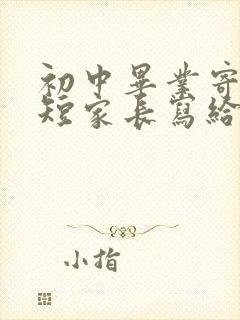 初中畢業寄
短家長寫給
小指